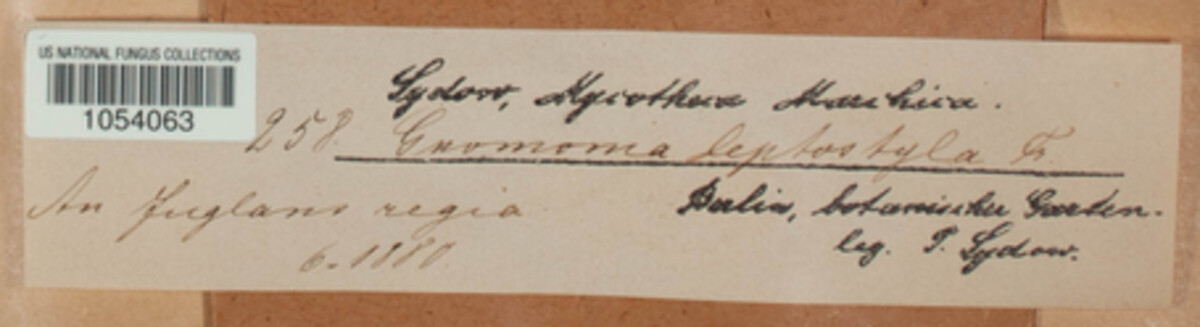 US NATIONAL FUNGUS COLLECTIONS
1054063
Sydow, Mycotheca Marchica.
258. Gnomonia leptostyla Fr.
An Juglans regia
6. 1880.
Berlin, botanischer Garten.
leg. P. Sydow.